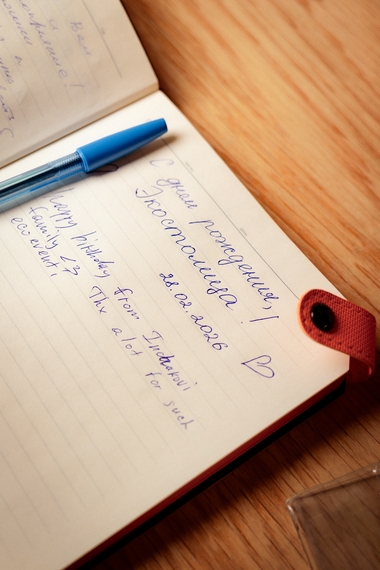 Вам
С днем рождения,
Экостолица!
28.02.2026 ♡
Happy birthday from Indrakovi
family <3 Thx a lot for such
eco event!